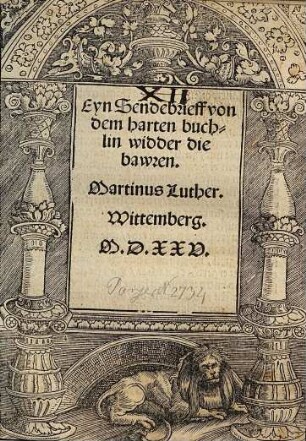 XII
Eyn Sendebrieff von
dem harten buch-
lin widder die
bawren.
Martinus Luther.
Wittemberg.
M.D.XXV.
Panzer N 2734